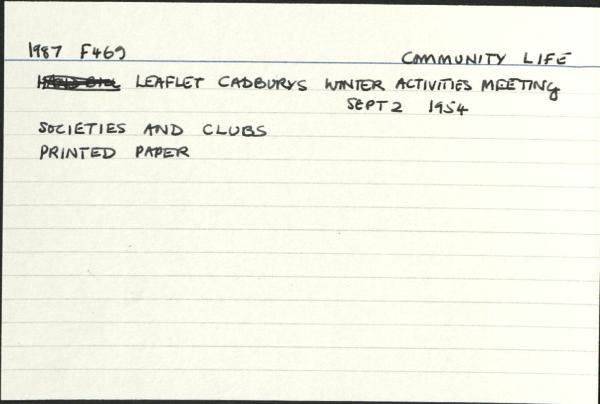 1987 F469 COMMUNITY LIFE
LEAFLET CADBURYS WINTER ACTIVITIES MEETING
SEPT 2 1954
SOCIETIES AND CLUBS
PRINTED PAPER